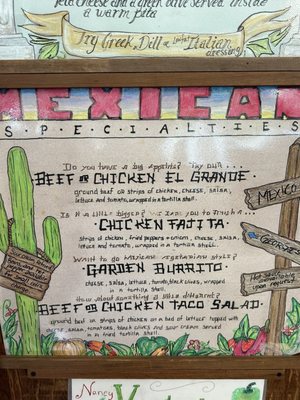 feta cheese and a green olive served inside
a warm pita
Try Greek, Dill or Italian
dressing!
MEXICAN
SPECIALTIES
Do you have a big appetite? Try our . . .
BEEF OR CHICKEN EL GRANDE
ground beef or strips of chicken, cheese, salsa,
lettuce and tomato, wrapped in a tortilla shell.
CHICKEN FAJITA
strips of chicken, fried peppers + onion, cheese, salsa,
lettuce and tomato, wrapped in a tortilla shell.
Want to go Mexican vegetarian style?
GARDEN BURRITO
cheese, salsa, lettuce, tomato, black olives, wrapped
in a tortilla shell
How about something a little different?
BEEF OR CHICKEN TACO SALAD
ground beef or strips of chicken on a bed of lettuce topped with
cheese, salsa, tomatoes, black olives and sour cream served
in a tortilla shell.
MEXICO
upon request
Nancy